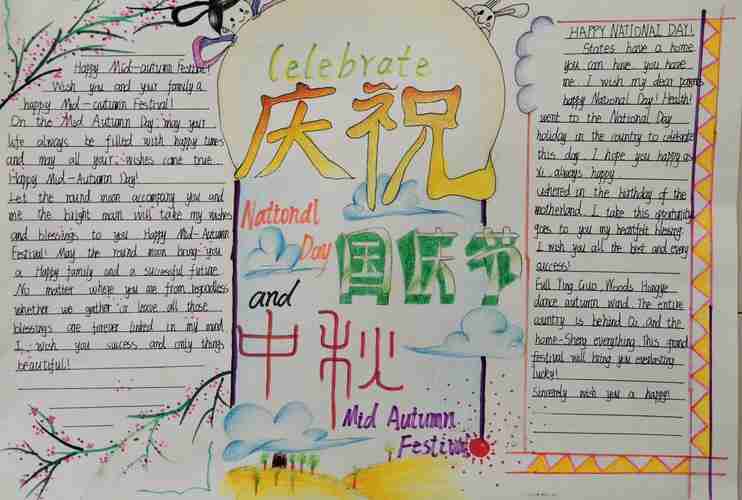 Happy Mid-autumn Festival!
Wish you and your family a
happy Mid-autumn Festival!
On the Mid Autumn Day may your
life always be filled with happy tunes
and may all your wishes come true
Happy Mid-Autumn Day!
Let the round moon accompany you and
me the bright main will take my wishes
and blessings to you Happy Mid-Autumn
Festival! May the round moon bring you
a Happy family and a successful future
No matter where you are from regardless
whether we gather or leave all those
blessings are forever linked in my mind
I wish you success and only things
beautiful!
Celebrate
庆祝
National
Day
国庆节
and
中秋
Mid Autumn
Festival
HAPPY NATIONAL DAY!
States have a home
you can have you have
me I wish my dear parents
happy National Day! Health!
went to the National Day
holiday in the country to celebrate
this day. I hope you happy as
always happy
ushered in the birthday of the
motherland. I take this opportunity
goes to you my heartfelt blessing
I wish you all the best and every
success!
Full Ting Guio Woods Hongye
dance autumn wind. The entire
country is behind and the
home-Sheng everything This grand
festival will bring you everlasting
lucky!
Sincerely wish you a happy!